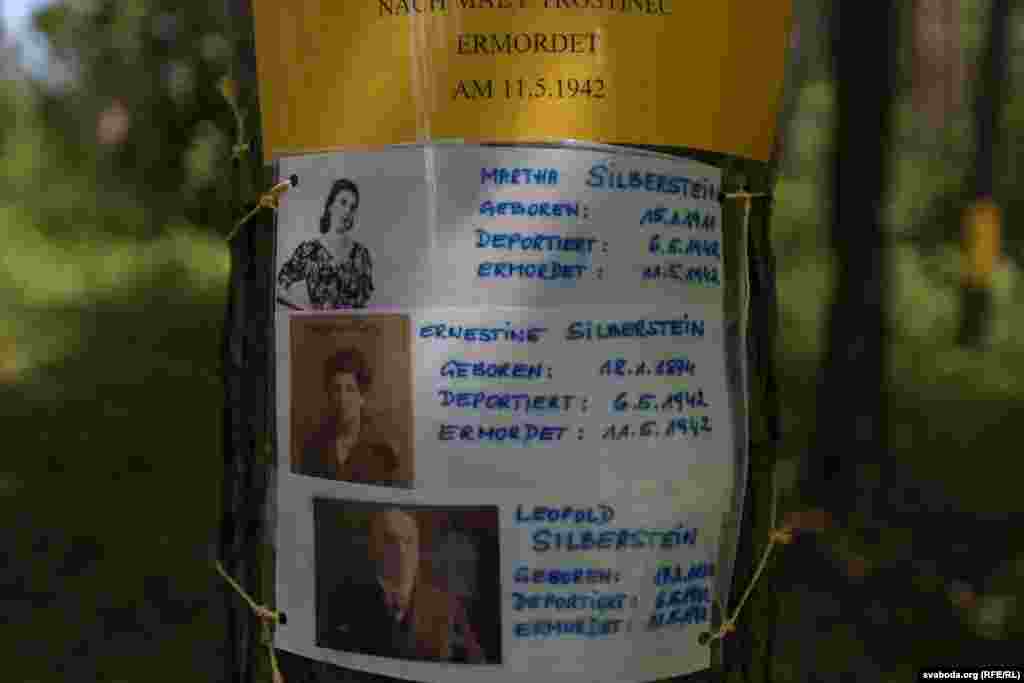 NACH MALY TROSTINEC
ERMORDET
AM 11.5.1942
MARTHA SILBERSTEIN
GEBOREN: 15.1.1911
DEPORTIERT: 6.5.1942
ERMORDET: 11.5.1942
ERNESTINE SILBERSTEIN
GEBOREN: 18.1.1894
DEPORTIERT: 6.5.1942
ERMORDET: 11.5.1942
LEOPOLD
SILBERSTEIN
GEBOREN:
DEPORTIERT: 6.5.1942
ERMORDET: 11.5.1942
svaboda.org (RFE/RL)